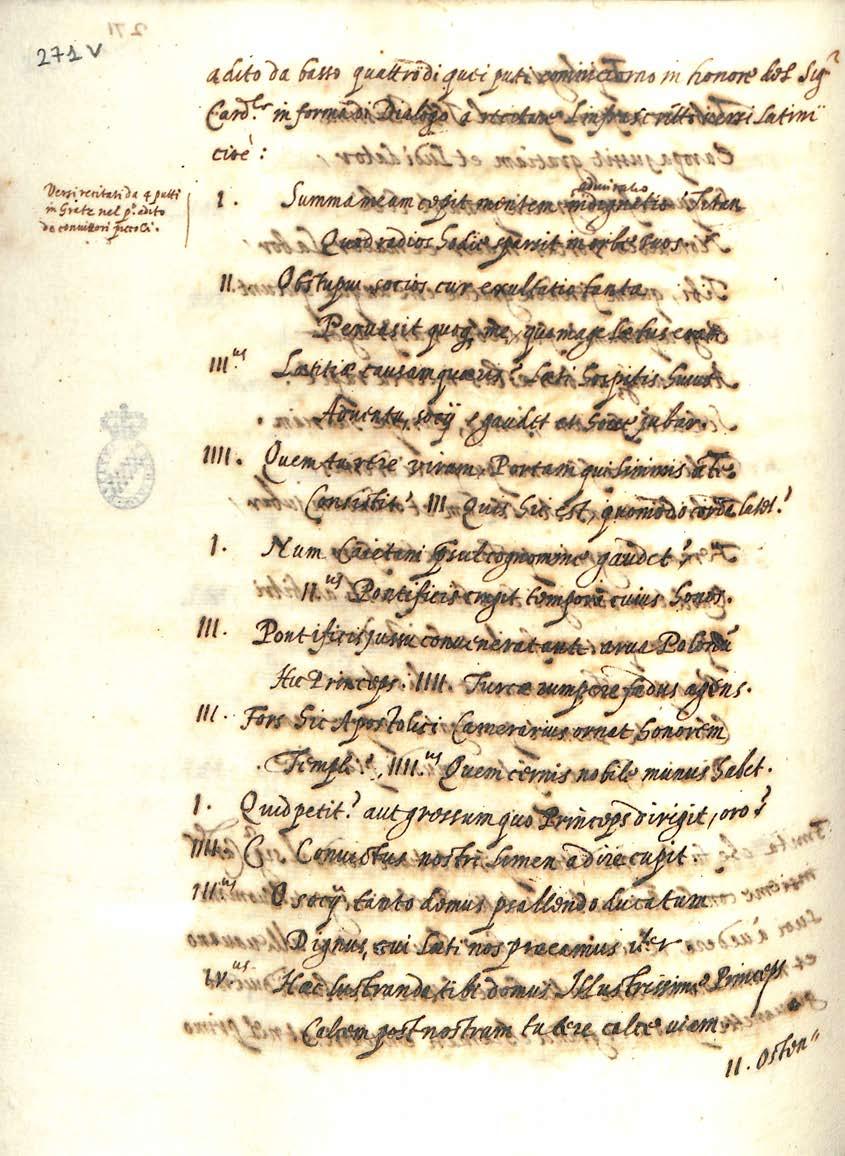 271 v
adito da basso quattro di quei puti cominciorno in honore del Sigr
Cardle in forma di Dialogo a recitare l'infrascritti versi latini
cioè:
Versi recitati da 4 putti
in Gratz nel po adito
de convittori piccoli.
I. Summa meam cepit mentem admiratio indignatio Titan
Quod radios hodie sparsit in orbe suos.
II. Obstupui socios cur exultatio tanta
Pervasit quoq me, quo mage laetus eram
III.us Laetitiae causam quaeris? Laeti hospitis huius
Adventu, socij, gaudet et hocce jubar.
IIII. Quem virum Portam qui liminis ante
Consistit? III. Quis hic est, quomodo corda latet?
I. Num Caietani cognomine gaudet?
II.us Pontificis cingit tempora cuius honos.
III. Pontificis jussu convenerat ante arva Polonū
Hic Princeps. IIII. Turcae rumpere faedus agens.
III. Fors hic Apostolici Camerarius ornat honorem
Templi?, IIII.us Quem cernis nobile munus habet.
I. Quid petit? aut gressum quo Princeps dirigit, oro?
IIII. Convictus nostri limen adire cupit.
III.us O socij, tanto domus psallendo ducatum
Dignus, cui laeti nos praeeamus iter
IV.us Haec lustranda tibi domus Illustrissime Princeps
Calcem post nostram tu calce viam
II. Osten"